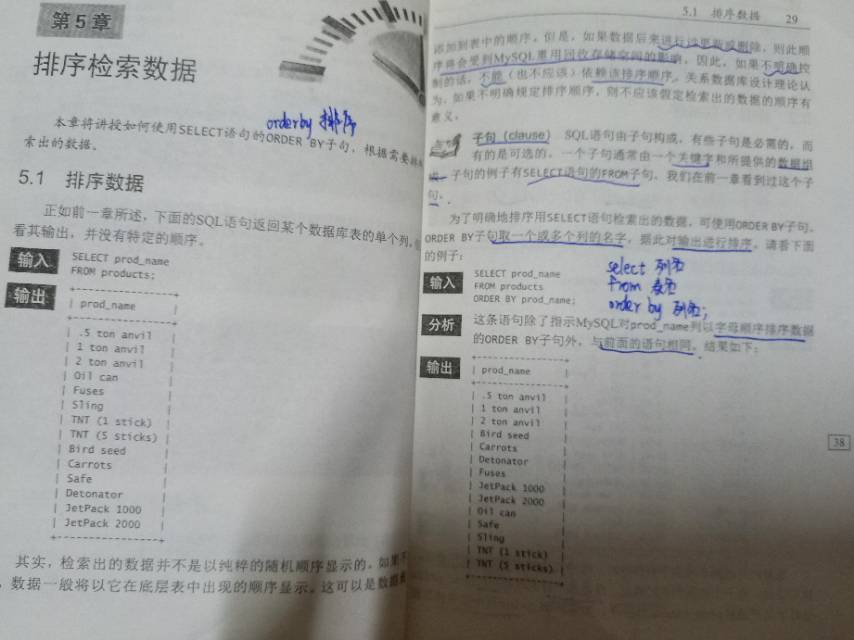 第5章
排序检索数据
orderby 排序
本章将讲授如何使用SELECT语句的ORDER BY子句，根据需要
索出的数据。
5.1 排序数据
正如前一章所述，下面的SQL语句返回某个数据库表的单个列。
看其输出，并没有特定的顺序。
输入
SELECT prod_name
FROM products;
输出
| prod_name |
| .5 ton anvil |
| 1 ton anvil |
| 2 ton anvil |
| Oil can |
| Fuses |
| Sling |
| TNT (1 stick) |
| TNT (5 sticks) |
| Bird seed |
| Carrots |
| Safe |
| Detonator |
| JetPack 1000 |
| JetPack 2000 |
其实，检索出的数据并不是以纯粹的随机顺序显示的。如果
，数据一般将以它在底层表中出现的顺序显示。这可以是数据
5.1 排序数据 29
添加到表中的顺序。但是，如果数据后来进行过更新或删除，则此顺
序将会受到MySQL重用回收存储空间的影响。因此，如果不明确控
制的话，不能（也不应该）依赖该排序顺序。关系数据库设计理论认
为，如果不明确规定排序顺序，则不应该假定检索出的数据的顺序有
意义。
子句（clause） SQL语句由子句构成，有些子句是必需的，而
有的是可选的。一个子句通常由一个关键字和所提供的数据组
成。子句的例子有SELECT语句的FROM子句，我们在前一章看到过这个子
句。
为了明确地排序用SELECT语句检索出的数据，可使用ORDER BY子句。
ORDER BY子句取一个或多个列的名字，据此对输出进行排序。请看下面
的例子：
输入
SELECT prod_name
FROM products
ORDER BY prod_name;
select 列名
from 表名
order by 列名;
分析
这条语句除了指示MySQL对prod_name列以字母顺序排序数据
的ORDER BY子句外，与前面的语句相同。结果如下：
输出
| prod_name |
| .5 ton anvil |
| 1 ton anvil |
| 2 ton anvil |
| Bird seed |
| Carrots |
| Detonator |
| Fuses |
| JetPack 1000 |
| JetPack 2000 |
| Oil can |
| Safe |
| Sling |
| TNT (1 stick) |
| TNT (5 sticks) |
38